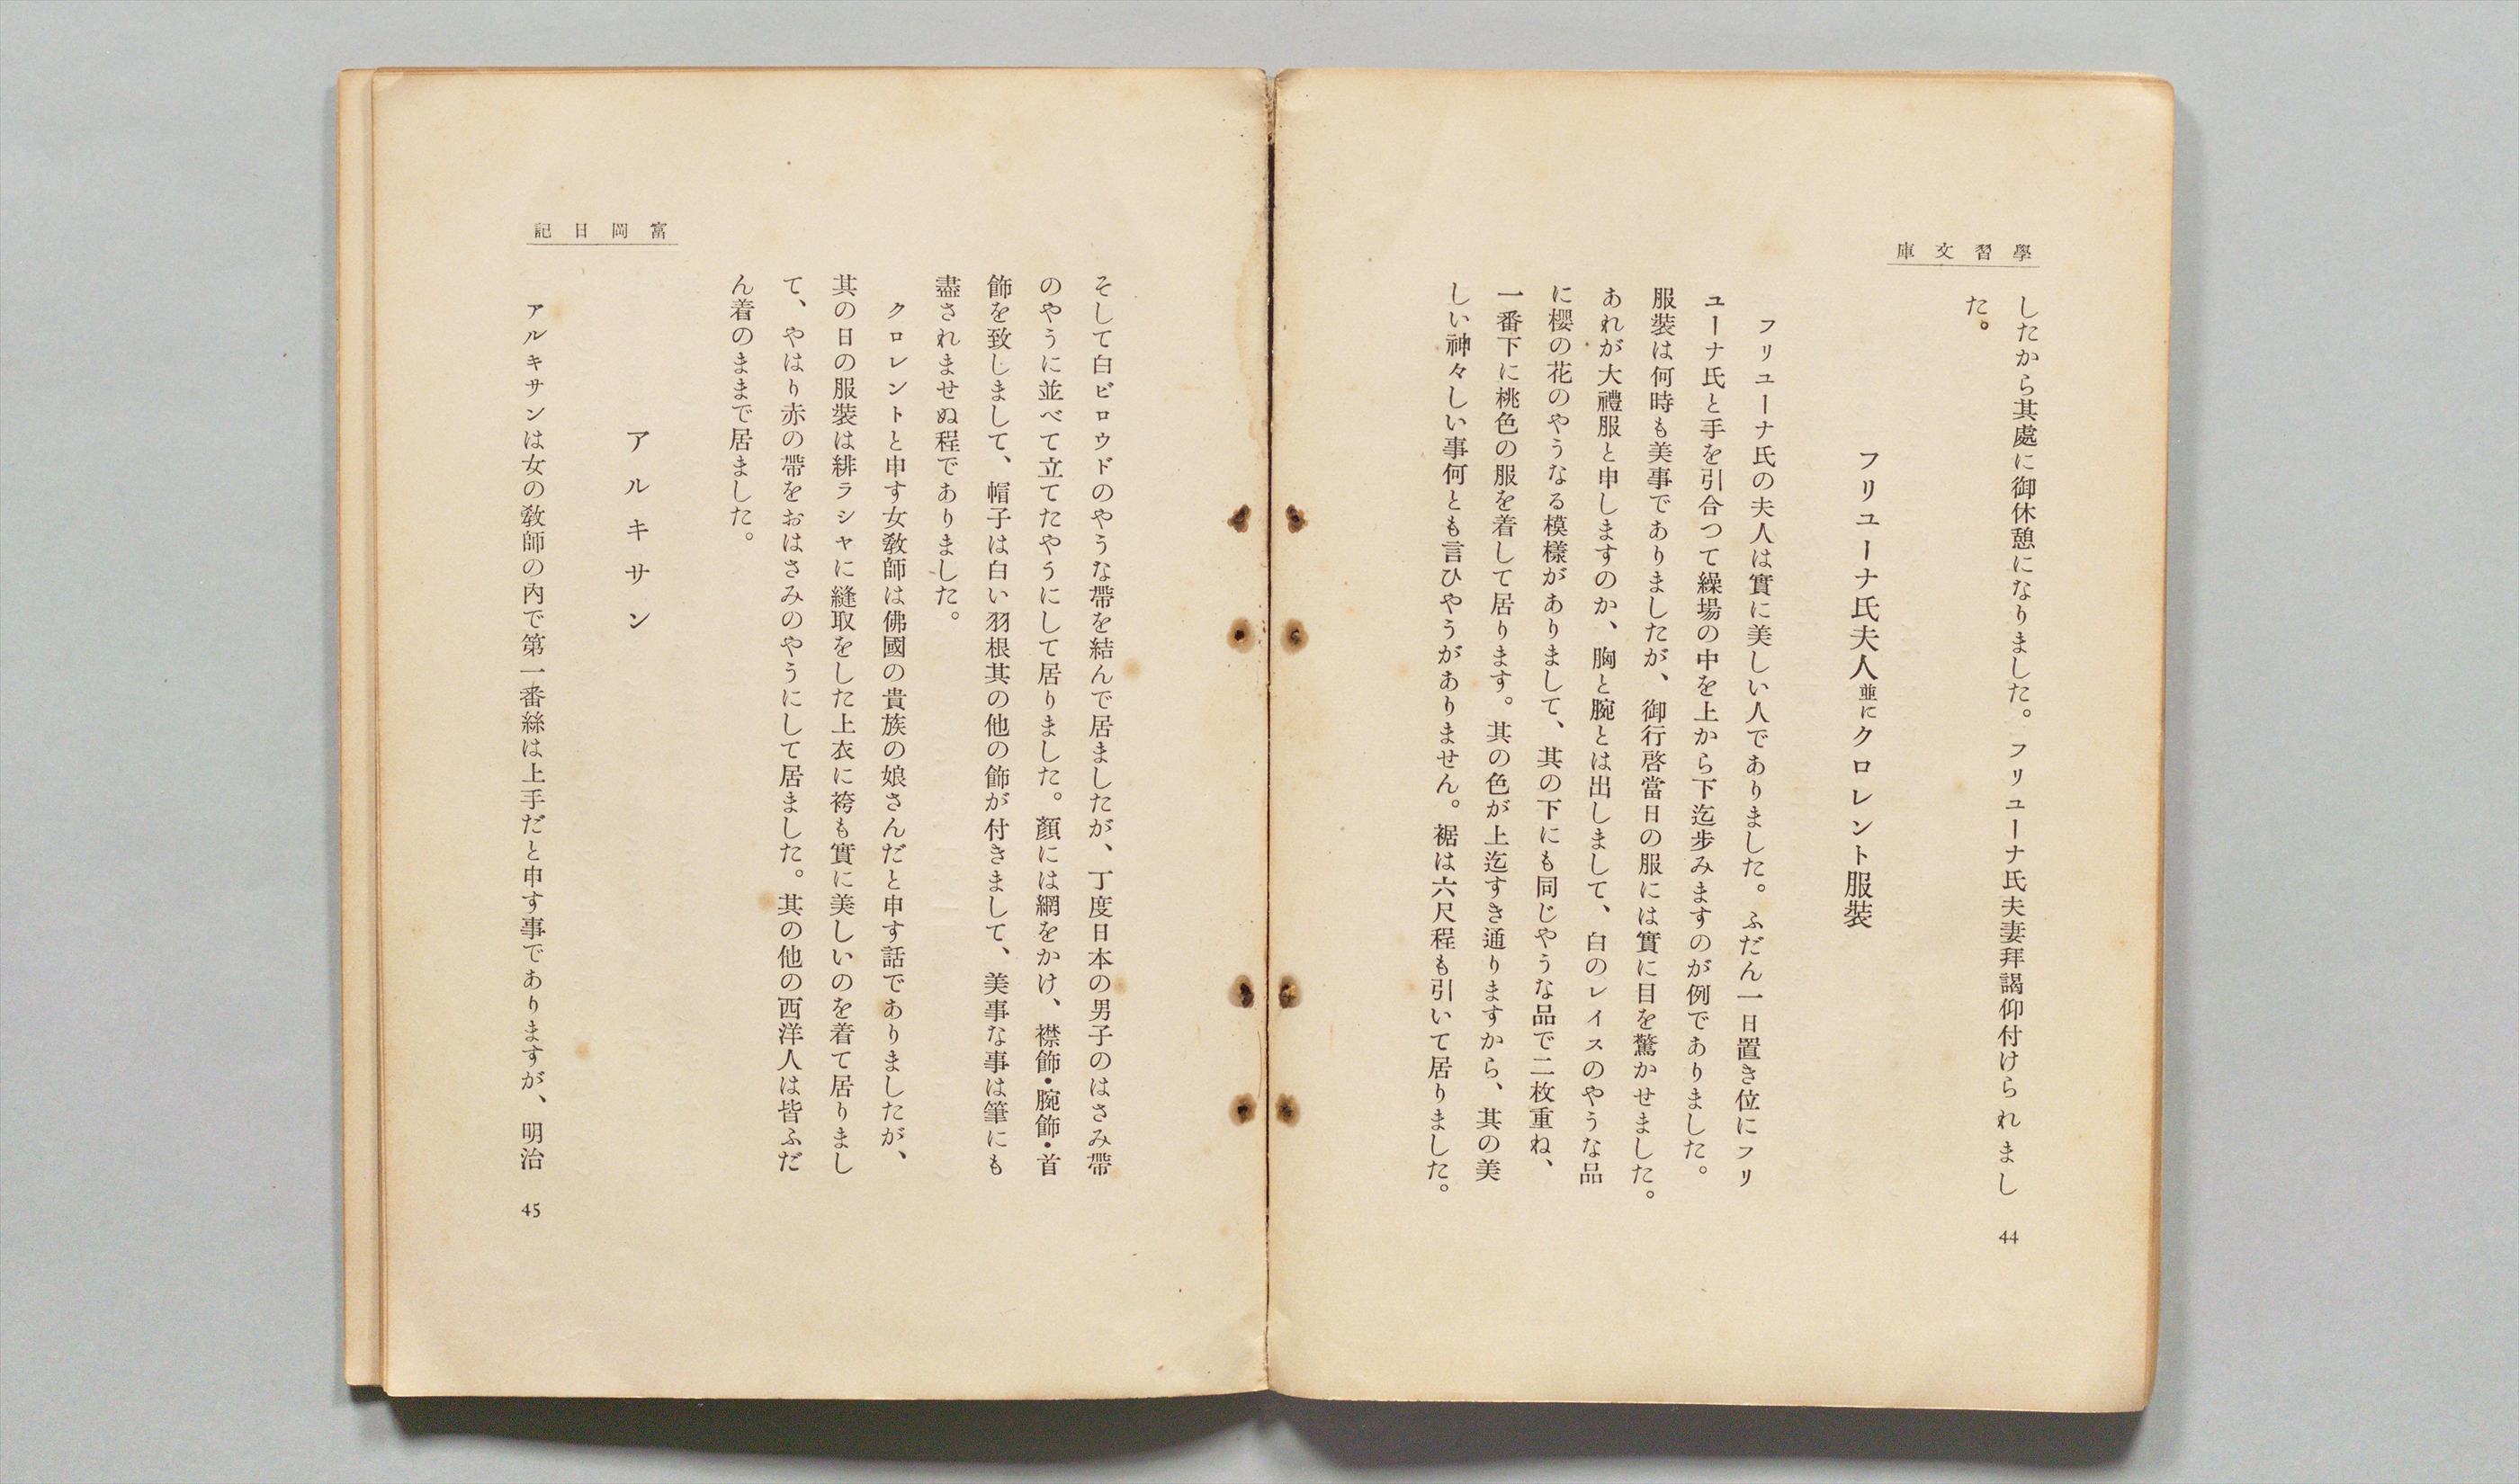 學習文庫
したから其處に御休憩になりました。フリユーナ氏夫妻拜謁仰付けられまし
た。
フリユーナ氏夫人並にクロレント服裝
フリユーナ氏の夫人は實に美しい人でありました。ふだん一日置き位にフリ
ユーナ氏と手を引合つて繰場の中を上から下迄歩みますのが例でありました。
服裝は何時も美事でありましたが、御行啓當日の服には實に目を驚かせました。
あれが大禮服と申しますのか、胸と腕とは出しまして、白のレイスのやうな品
に櫻の花のやうなる模樣がありまして、其の下にも同じやうな品で二枚重ね、
一番下に桃色の服を着して居ります。其の色が上迄すき通りますから、其の美
しい神々しい事何とも言ひやうがありません。裾は六尺程も引いて居りました。
44
富岡日記
そして白ビロウドのやうな帶を結んで居ましたが、丁度日本の男子のはさみ帶
のやうに並べて立てたやうにして居りました。顏には網をかけ、襟飾・腕飾・首
飾を致しまして、帽子は白い羽根其の他の飾が付きまして、美事な事は筆にも
盡されませぬ程でありました。
クロレントと申す女敎師は佛國の貴族の娘さんだと申す話でありましたが、
其の日の服裝は緋ラシャに縫取をした上衣に袴も實に美しいのを着て居りまし
て、やはり赤の帶をおはさみのやうにして居ました。其の他の西洋人は皆ふだ
ん着のままで居ました。
アルキサン
アルキサンは女の敎師の內で第一番絲は上手だと申す事でありますが、明治
45